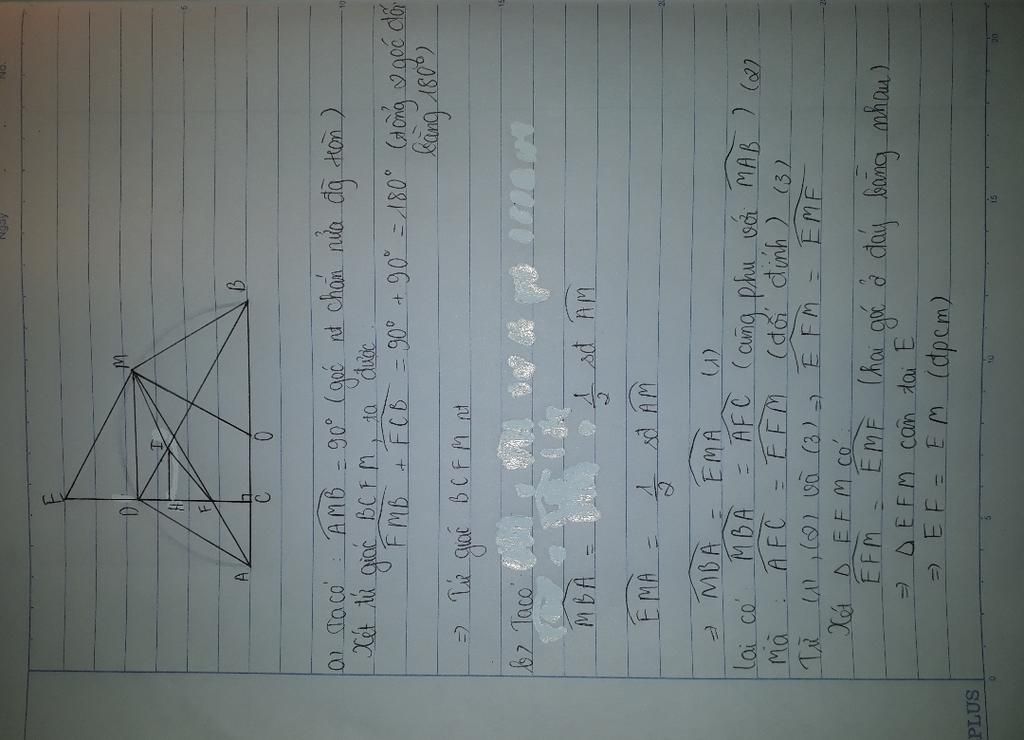 No.
Ngày
E
M
D
I
H
F
A
C
O
B
a) Ta có : AMB = 90° (góc nt chắn nửa đg tròn)
Xét tứ giác BCFM, ta được
FMB + FCB = 90° + 90° = 180° (tổng 2 góc đối
bằng 180°)
=> Tứ giác BCFM nt
b) Ta có
MBA = 1/2 sđ AM
EMA = 1/2 sđ AM
=> MBA = EMA (1)
Lại có MBA = AFC (cùng phụ với MAB) (2)
Mà : AFC = EFM (đối đỉnh) (3)
Từ (1), (2) và (3) => EFM = EMF
Xét Δ EFM có
EFM = EMF (hai góc ở đáy bằng nhau)
=> Δ EFM cân tại E
=> EF = EM (đpcm)
PLUS
0
5
10
15
20